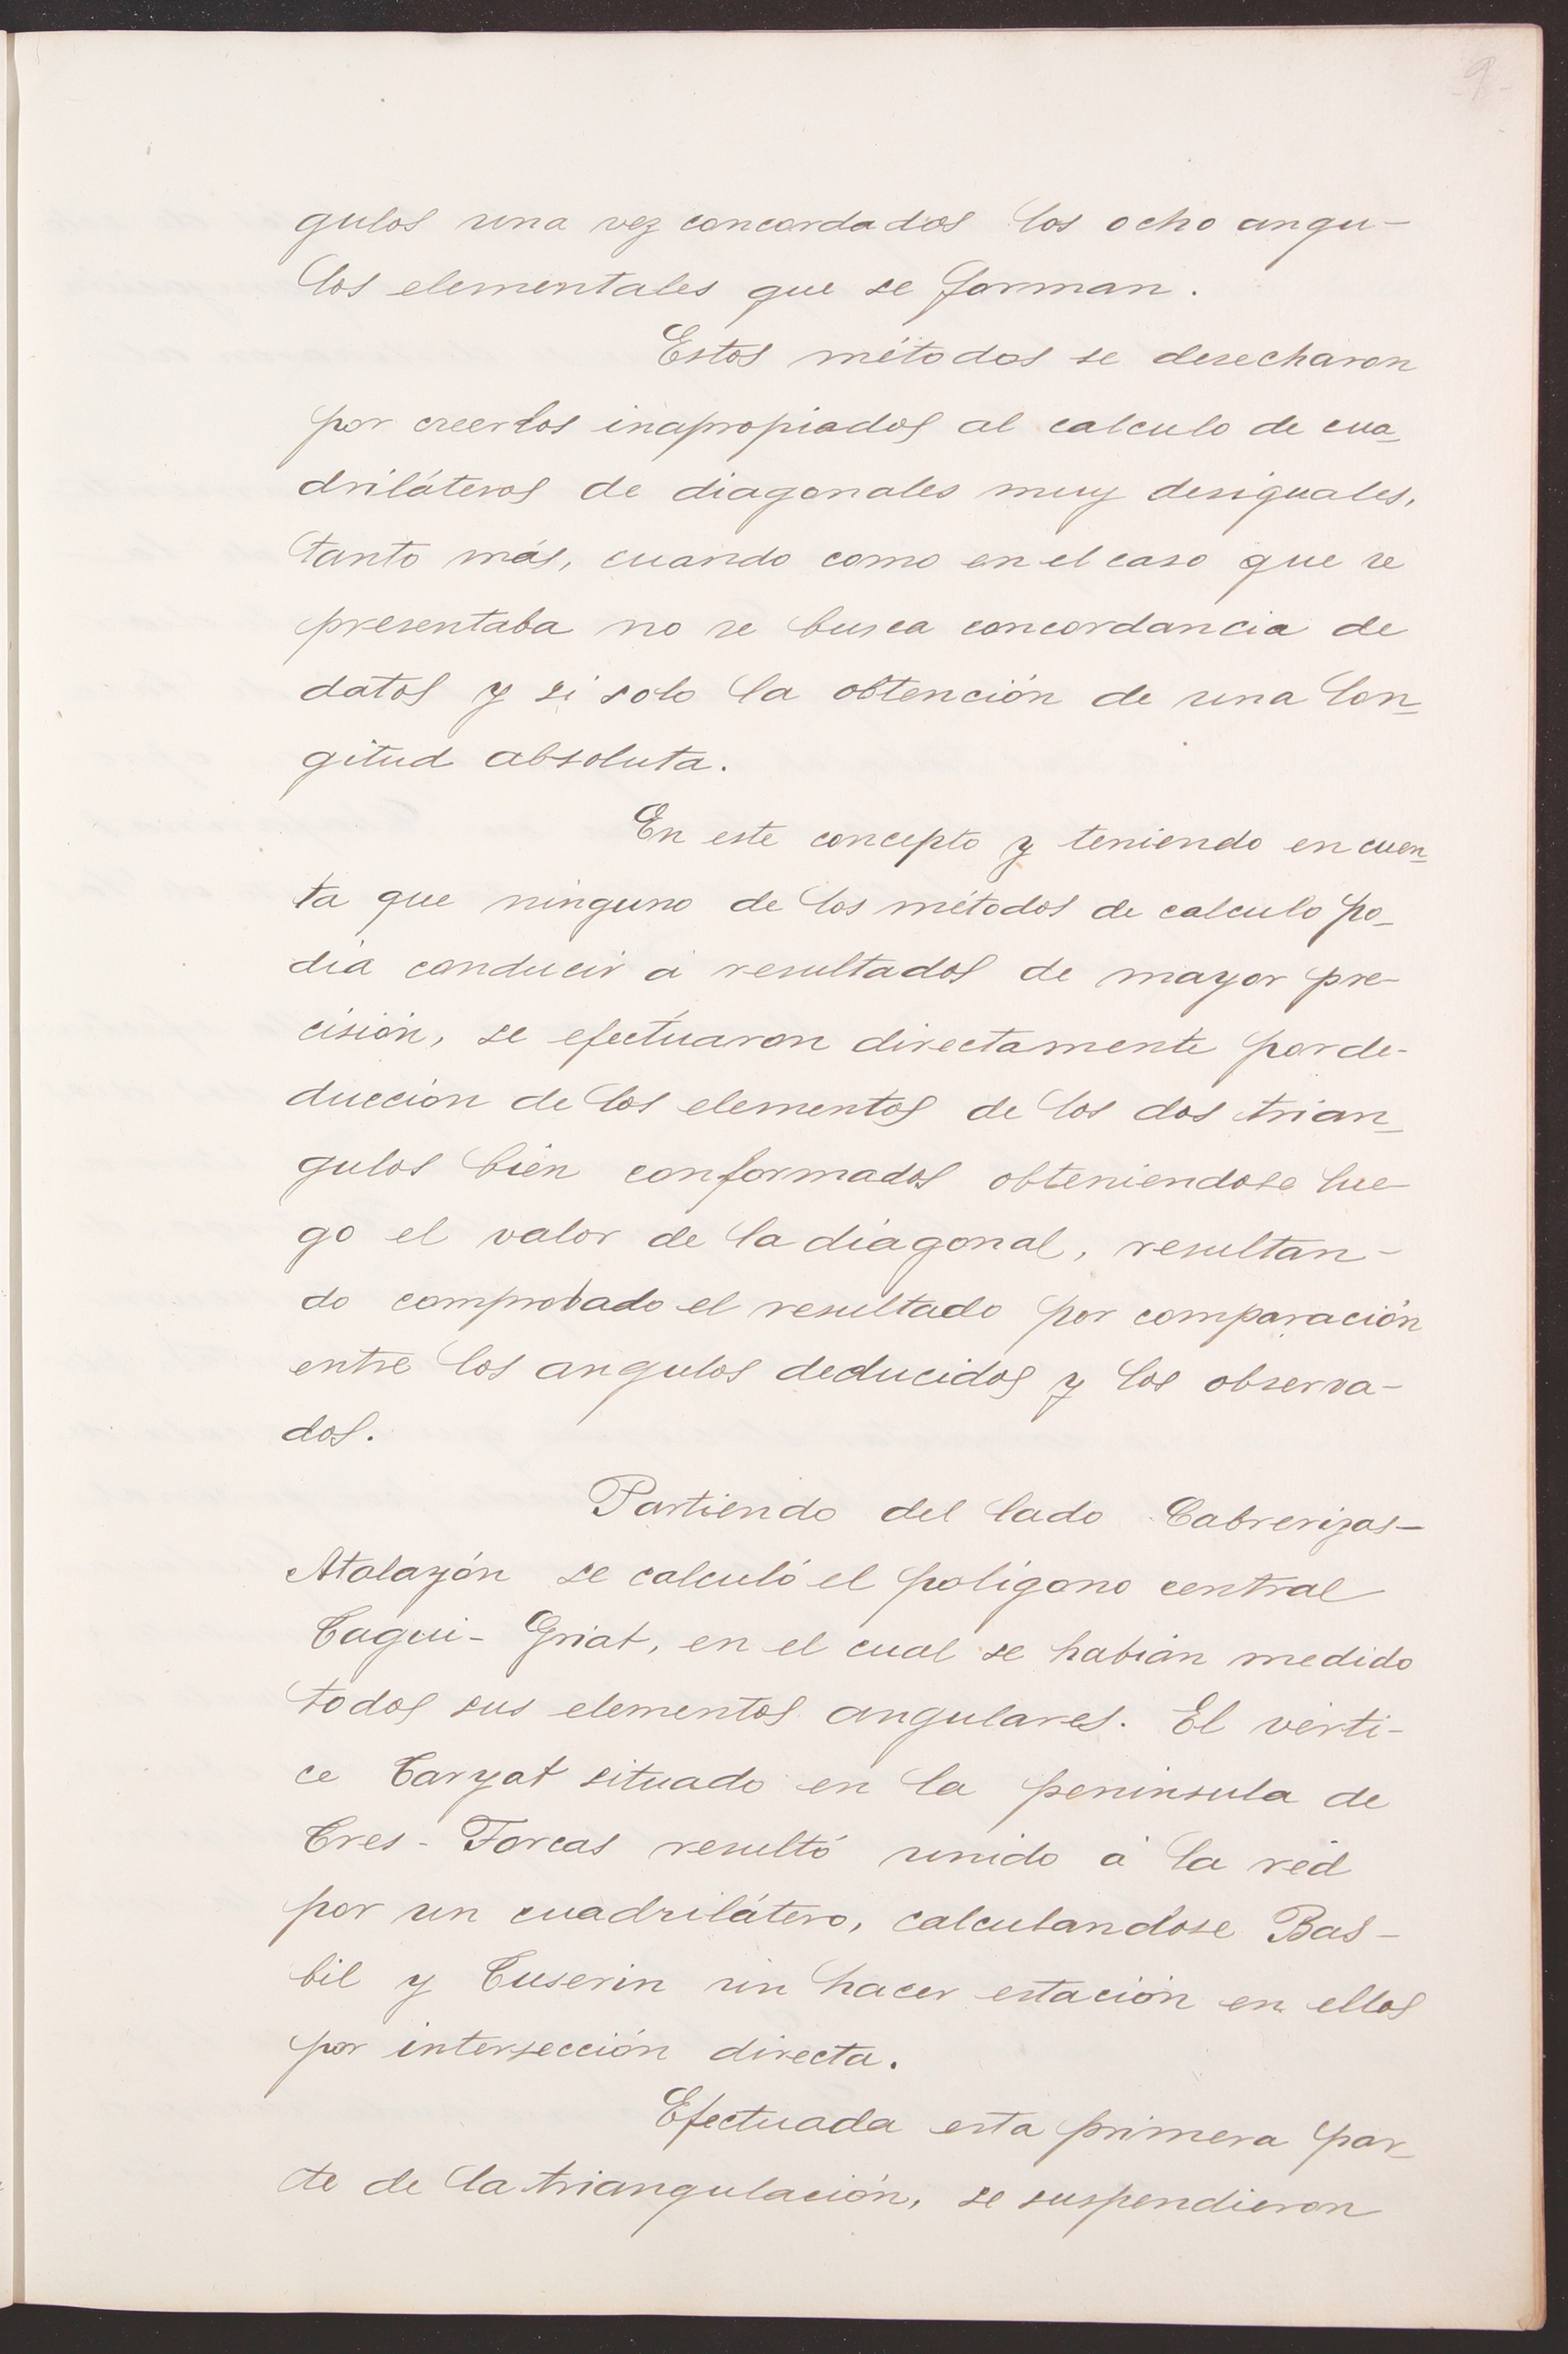 9
gulos una vez concordados los ocho angu-
los elementales que se forman.
Estos métodos se desecharon
por creerlos inapropiados al calculo de cua_
driláteros de diagonales muy desiguales,
tanto más, cuando como en el caso que se
presentaba no se busca concordancia de
datos y si solo la obtención de una lon_
gitud absoluta.
En este concepto y teniendo en cuen_
ta que ninguno de los métodos de calculo po_
dia conducir á resultados de mayor pre-
cisión, se efectuaron directamente por de-
ducción de los elementos de los dos trian_
gulos bien conformados obteniendose lue-
go el valor de la diagonal, resultan-
do comprobado el resultado por comparación
entre los angulos deducidos y los observa-
dos.
Partiendo del lado Cabrerizas-
Atalayón se calculó el poligono central
Tagui-Griat, en el cual se habian medido
todos sus elementos angulares. El vérti-
ce Taryat situado en la peninsula de
Tres-Forcas resultó unido á la red
por un cuadrilátero, calculandose Bas-
bil y Tuserin sin hacer estación en ellos
por intersección directa.
Efectuada esta primera par_
te de la triangulación, se suspendieron